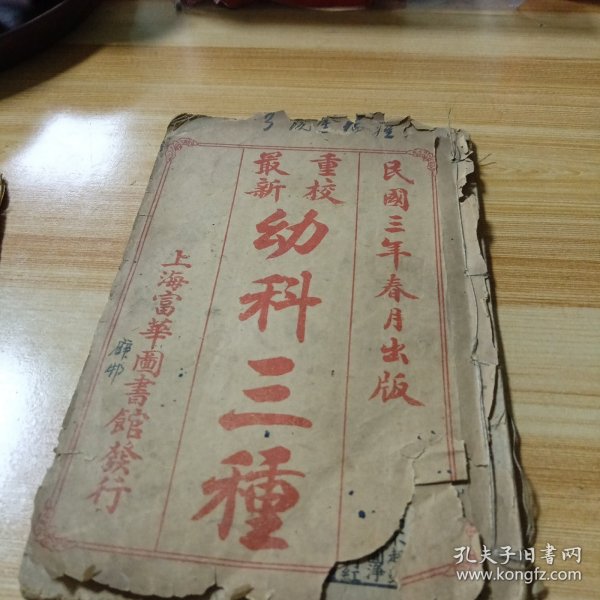 民國三年春月出版
重校
最新
幼科三種
上海富華圖書館發行
孔夫子旧书网
www.kongfz.com